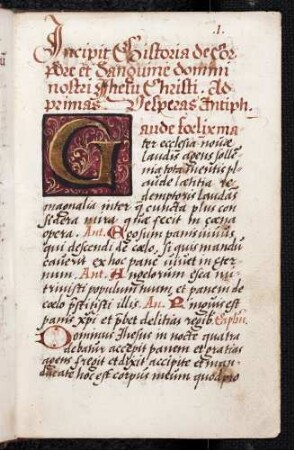 .I.
Incipit Historia de Cor
pore et Sanguine domini
nostri Jhesu Christi. Ad
primas Vesperas Antiph.
Gaude foelix ma
ter ecclesia novae
laudis agens
tota mentis pl
aude laetitia re
demptoris laudas
magnalia inter quae cuncta plus con
sidera mira quae fecit in caena
opera. Ant. Ego sum panis vivus
qui descendi de coelo. Si quis mandu
caverit ex hoc pane vivet in eter
num. Ant. Angelorum esca nu
trivisti populum tuum, et panem de
coelo prestitisti illis. An. Pinguis est
panis xpi et prebet delitias regib. Capitu.
Dominus Jhesus in nocte qua tra
debatur accepit panem et gratias
agens fregit et dixit accipite et man
ducate hoc est corpus meum quod pro